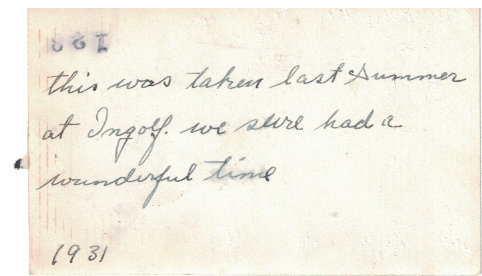 this was taken last summer
at Ingolf. we sure had a
wunderful time
1931